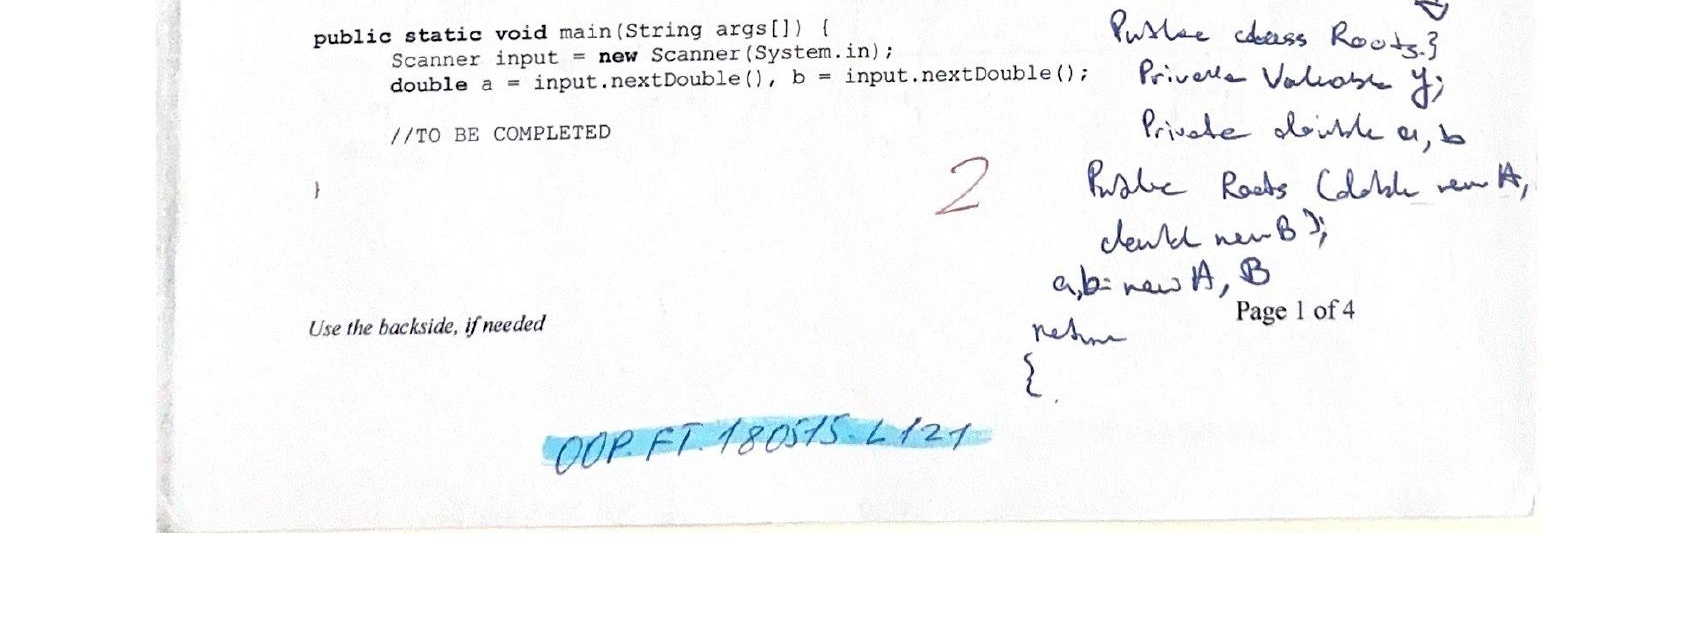 public static void main(String args[]) {
Scanner input = new Scanner(System.in);
double a = input.nextDouble(), b = input.nextDouble();
//TO BE COMPLETED
}
2
Public class Roots.}
Private Variable y;
Private double a, b
Public Roots (double new A,
double new B);
a,b= new A, B
return
{
Use the backside, if needed
Page 1 of 4
OOP.FT.180515.L121